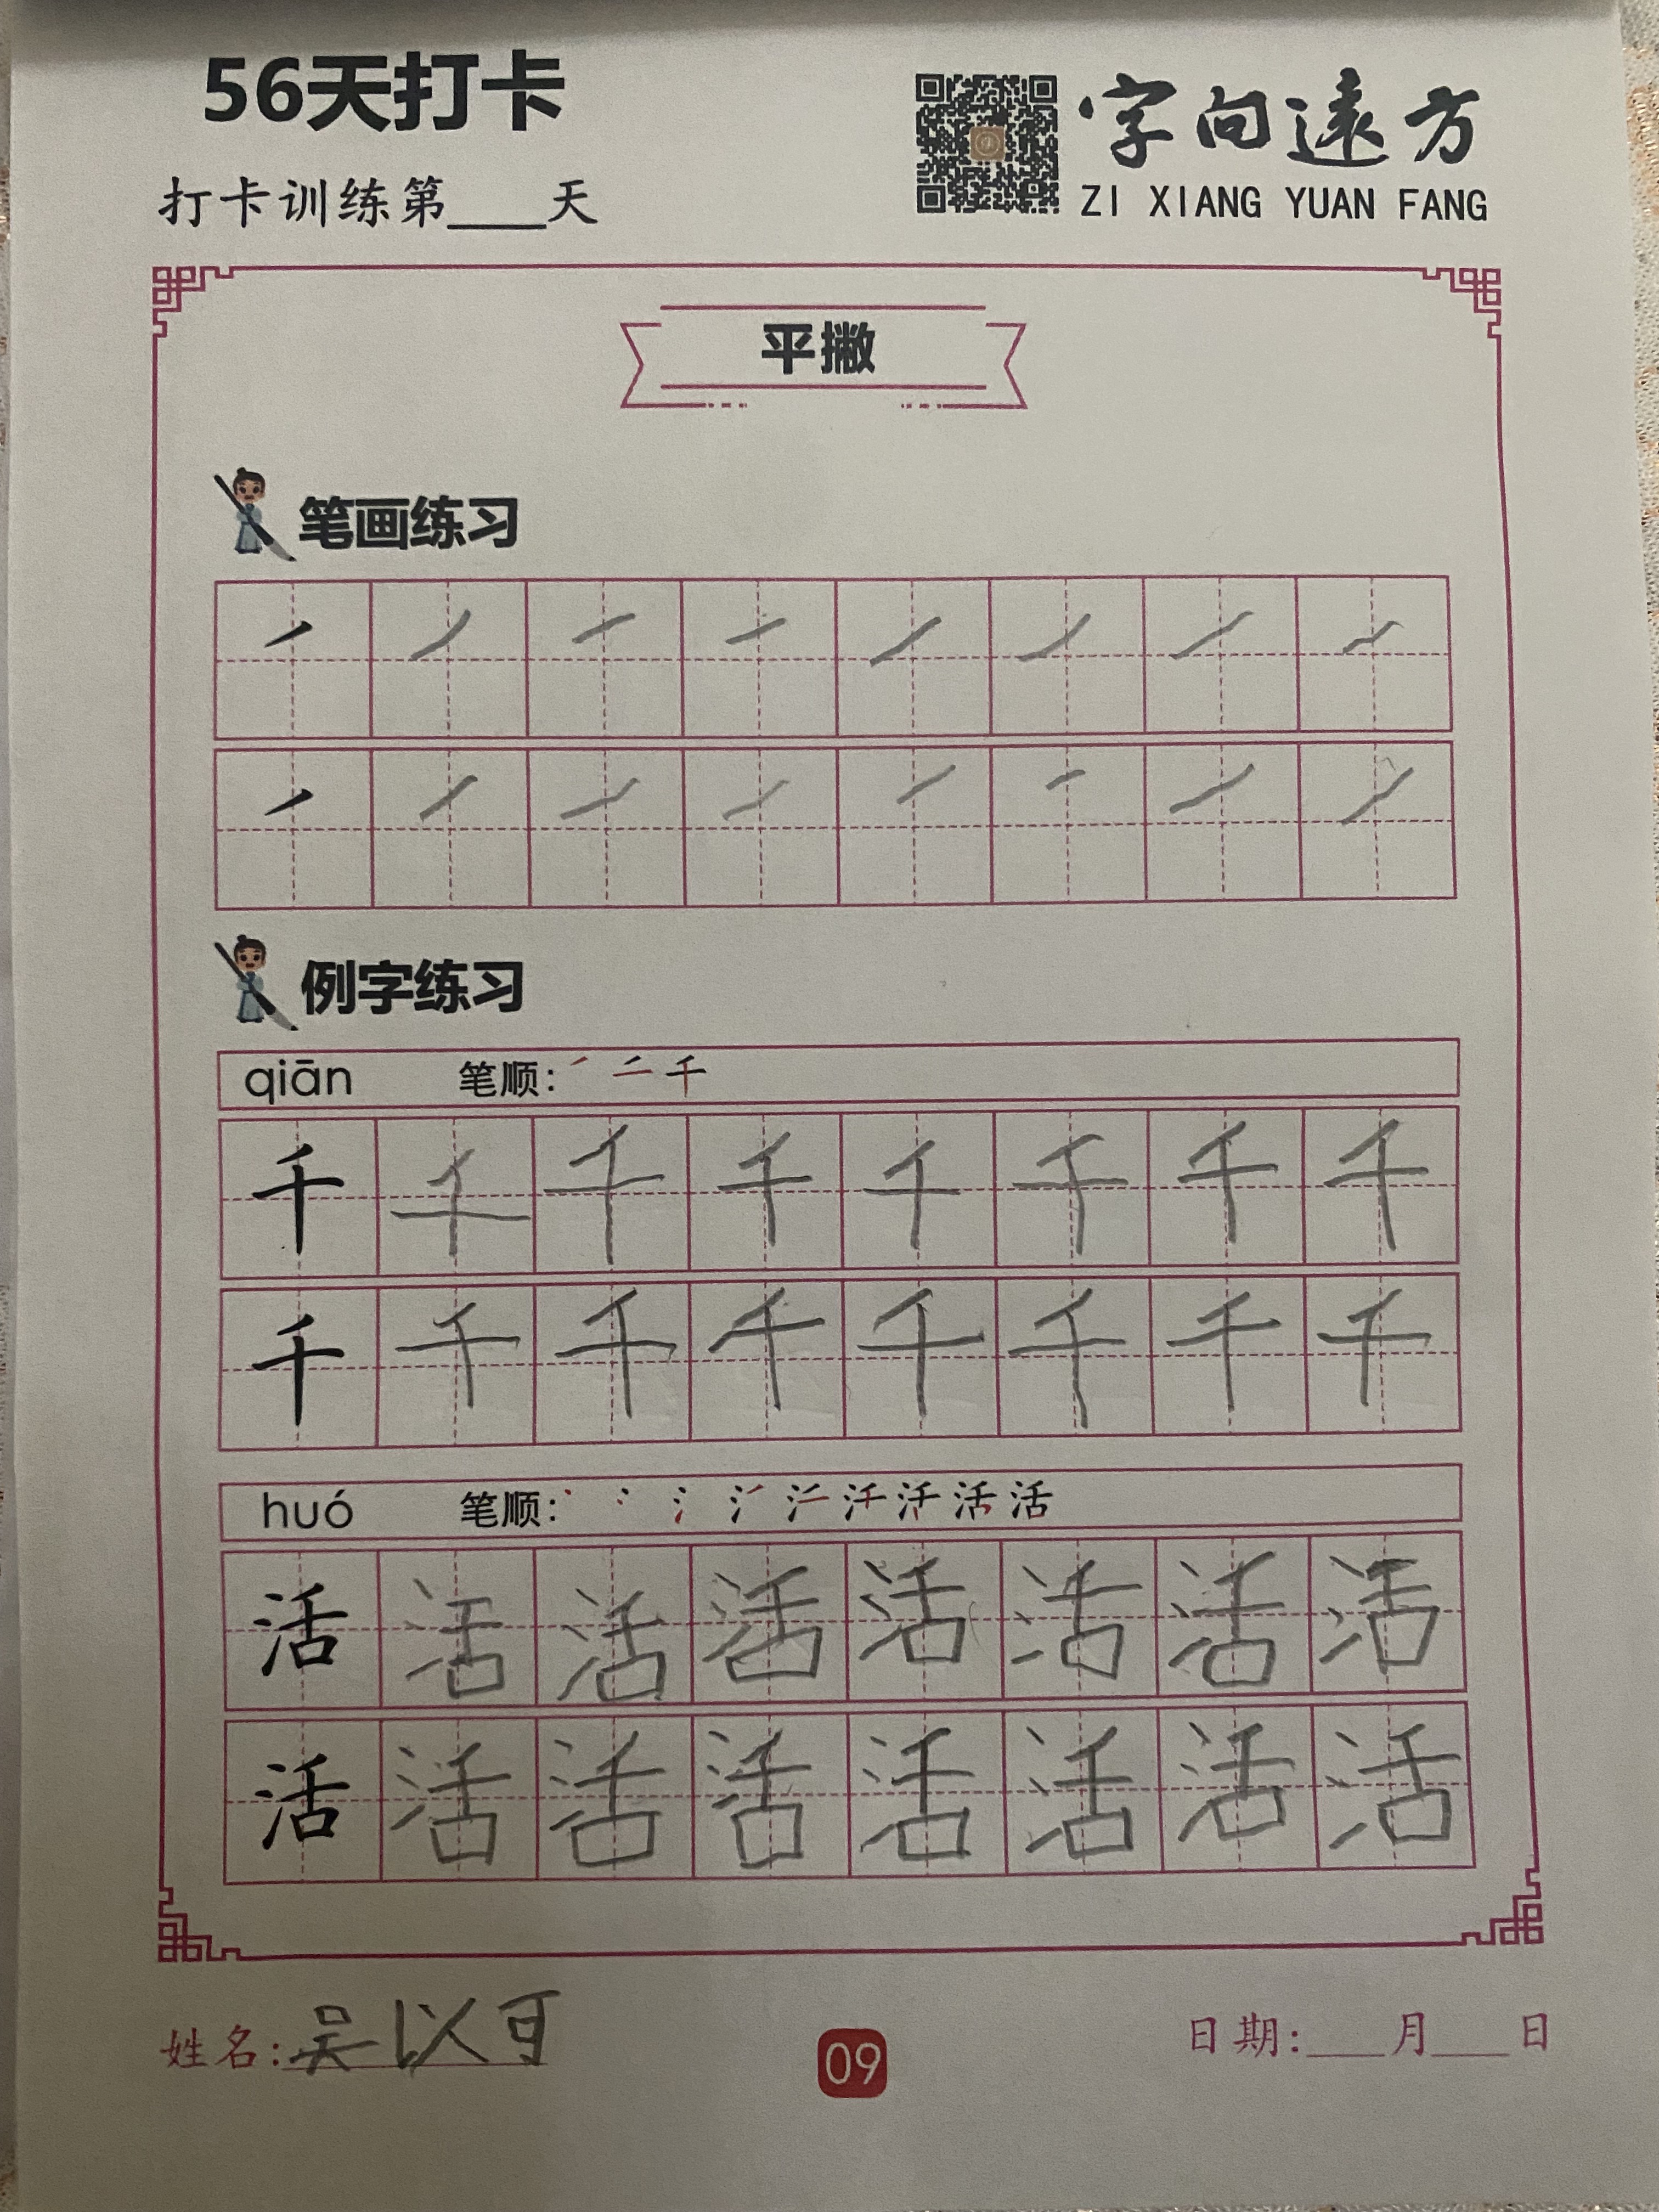 56天打卡
字向遠方
打卡训练第____天
ZI XIANG YUAN FANG
平撇
笔画练习
例字练习
qiān 笔顺: 千
千 千 千 千 千 千 千 千
千 千 千 千 千 千 千 千
huó 笔顺: 活
活 活 活 活 活 活 活 活
活 活 活 活 活 活 活 活
姓名:吴以可
09
日期:___月___日